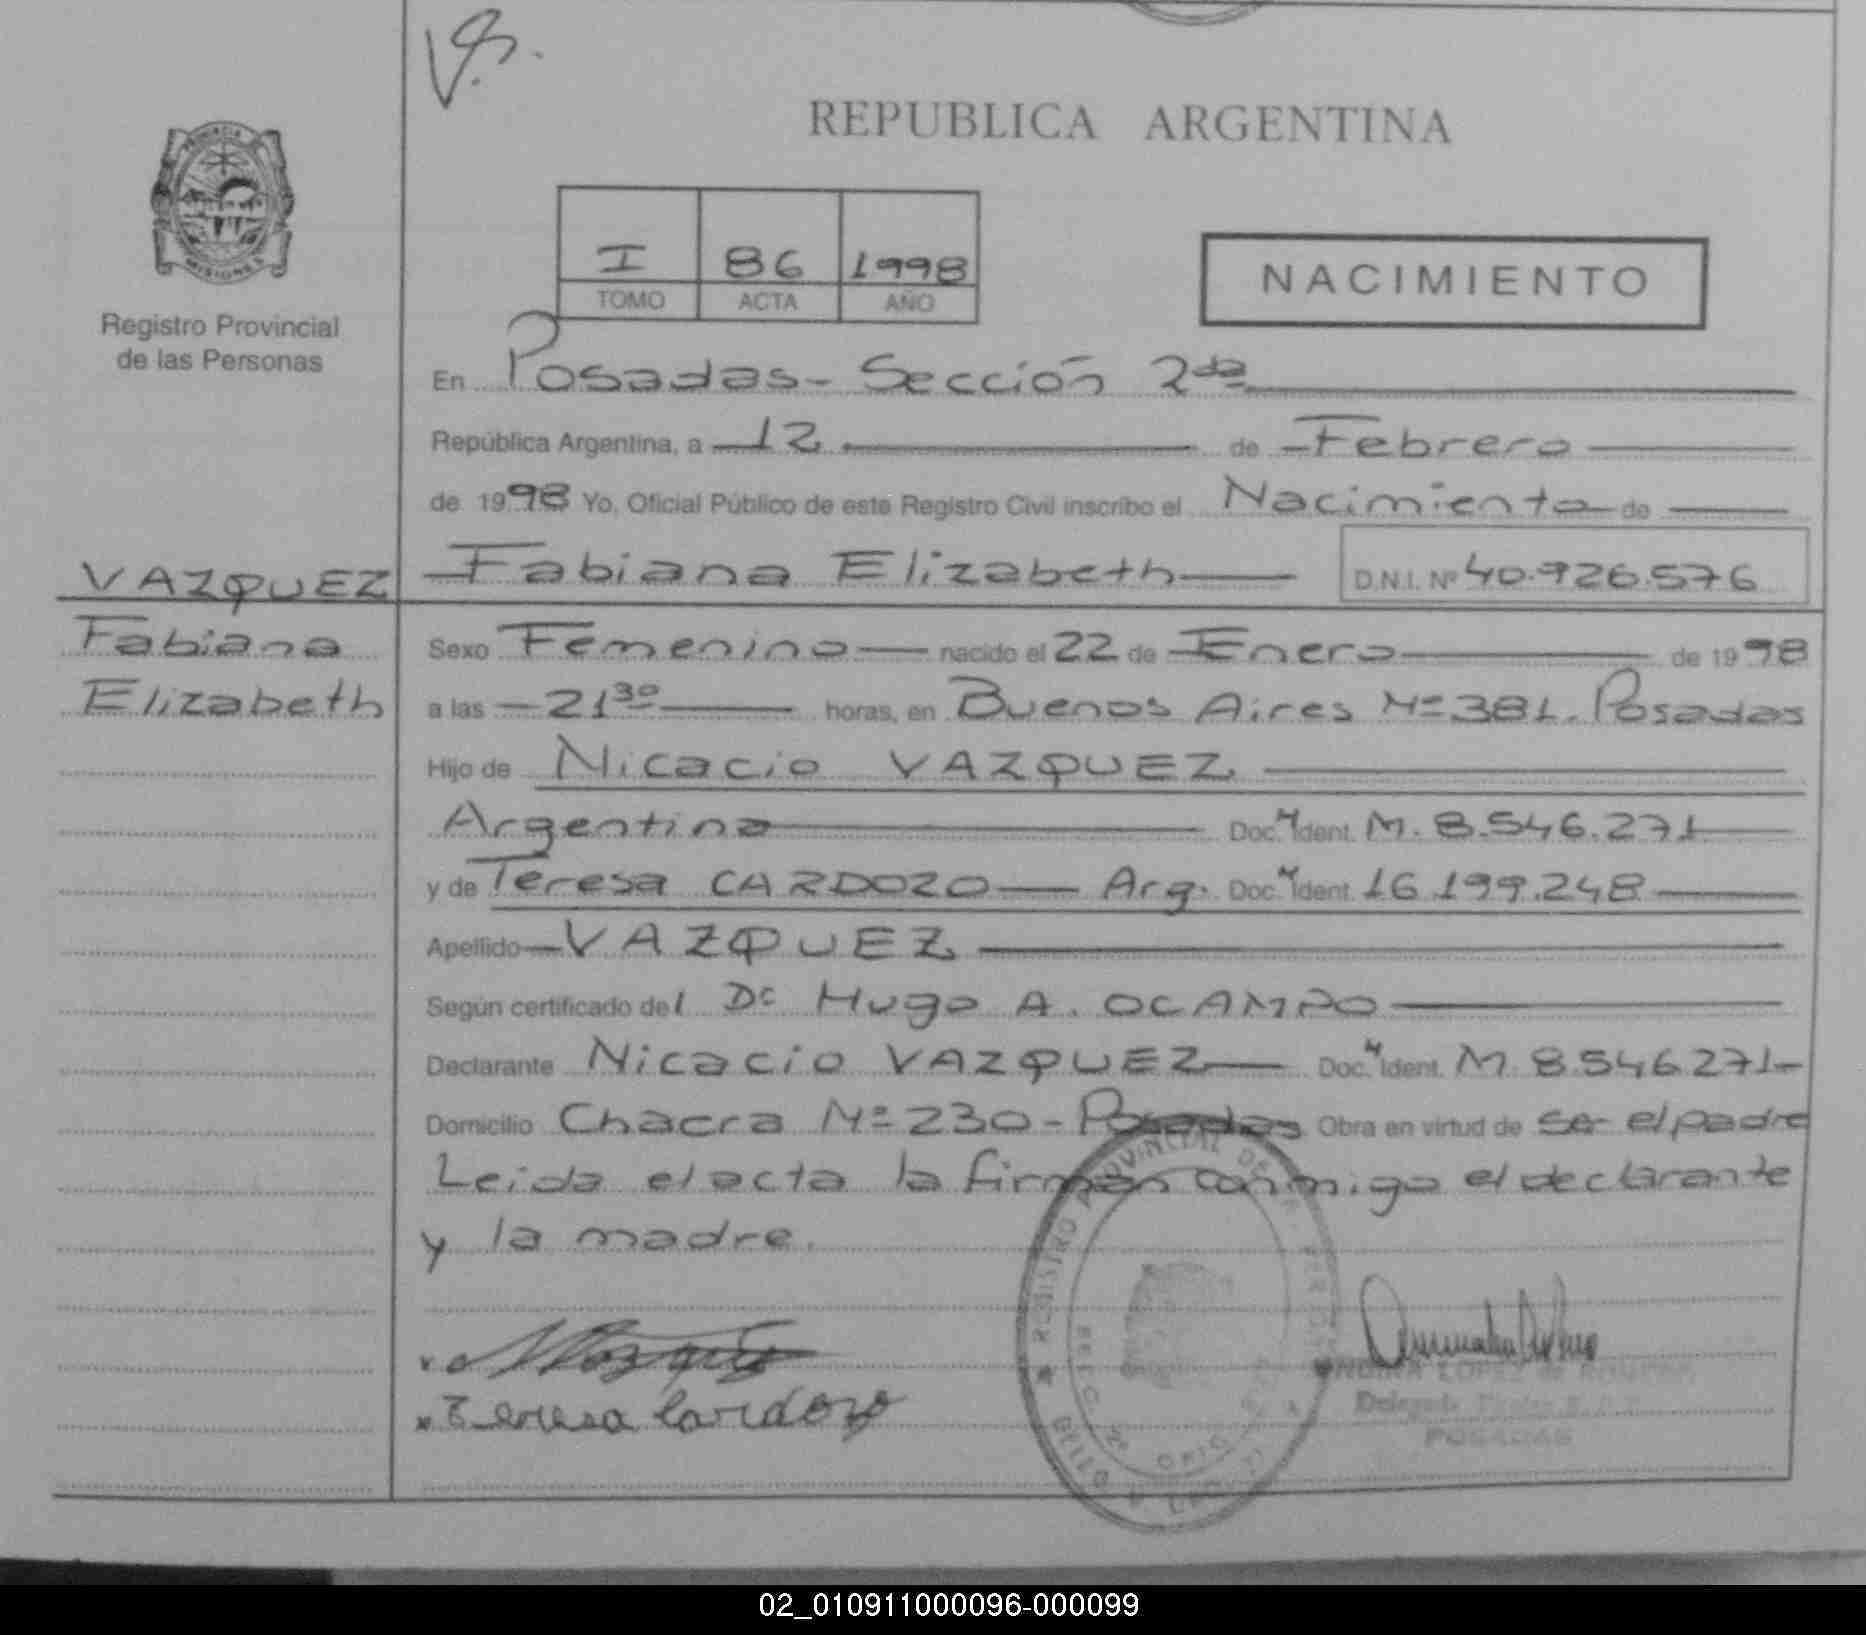 V.S.
REPUBLICA ARGENTINA
PROVINCIA
MISIONES
Registro Provincial
de las Personas
I 86 1998
TOMO ACTA AÑO
NACIMIENTO
En Posadas- Sección 2da
República Argentina, a 12 de Febrero
de 1998 Yo, Oficial Público de este Registro Civil inscribo el Nacimiento de
VAZQUEZ Fabiana Elizabeth D.N.I. Nº 40.926.576
Fabiana Sexo Femenino nacido el 22 de Enero de 1998
Elizabeth a las 21³⁰ horas, en Buenos Aires Nº 381. Posadas
Hijo de Nicacio VAZQUEZ
Argentina Doc. Ident. M. 8.546.271
y de Teresa CARDOZO Arg. Doc. Ident. 16.199.248
Apellido VAZQUEZ
Según certificado del Dr Hugo A. OCAMPO
Declarante Nicacio VAZQUEZ Doc. Ident. M. 8.546.271-
Domicilio Chacra Nº 230 - Posadas Obra en virtud de ser el padre
Leida el acta la firman conmigo el declarante
y la madre.
REGISTRO PROVINCIAL DE
Teresa Cardozo
LOPEZ de
POSADAS
02_010911000096-000099